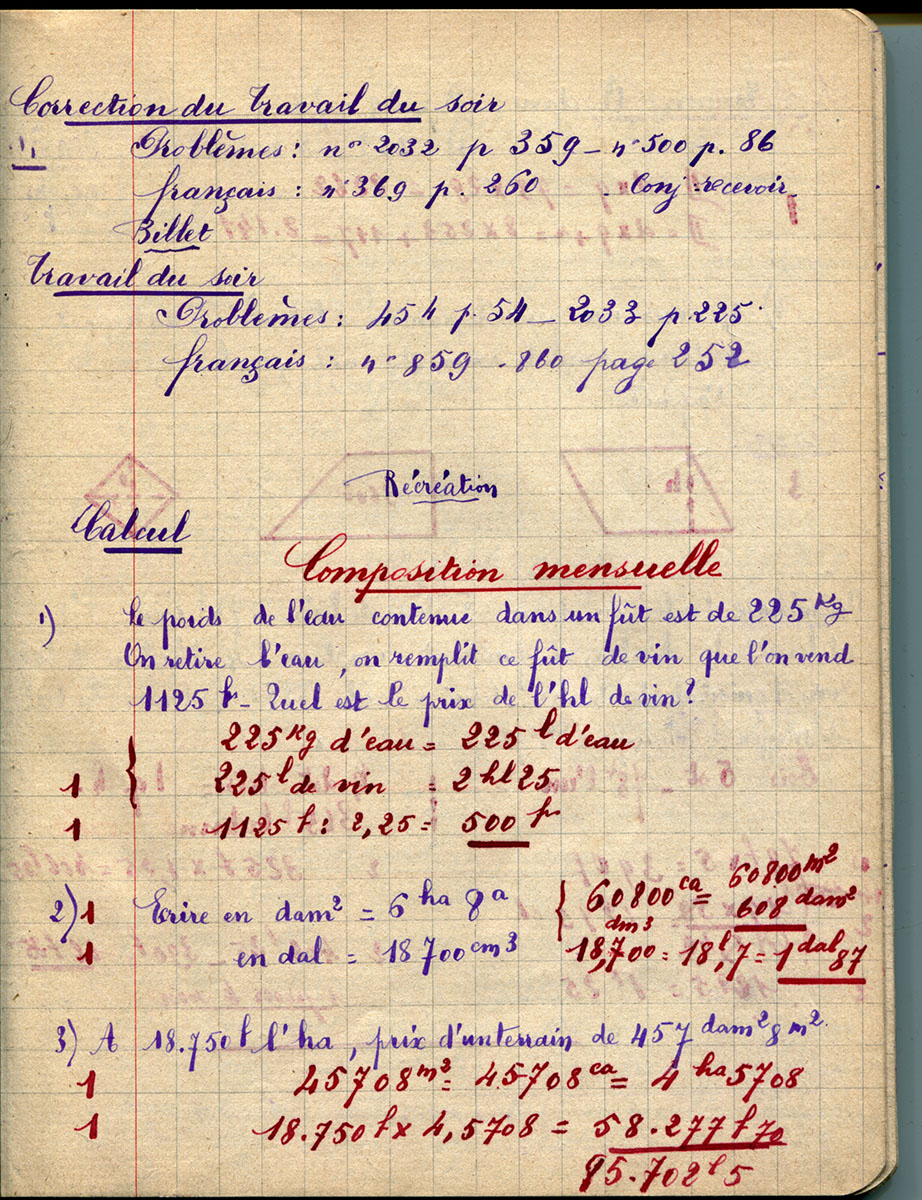 Correction du travail du soir
Problèmes : n° 2032 p 359 _ n° 500 p. 86
français : n° 369 p. 260 . Conj : recevoir
Billet
Travail du soir
Problèmes : 454 p. 54 _ 2033 p. 225.
français : n° 859 . 860 page 252
Récréation
Calcul
Composition mensuelle
1) Le poids de l'eau contenue dans un fût est de 225 Kg
On retire l'eau, on remplit ce fût de vin que l'on vend
1125 f _ Quel est le prix de l'hl de vin ?
225 Kg d'eau = 225 l d'eau
1 225 l de vin = 2 hl 25
1 1125 f : 2,25 = 500 f
2) 1 Ecrire en dam² = 6 ha 8 a { 60800 ca = 60800 m²
608 dam²
1 en dal = 18700 cm3 dm3 18,700 = 18 l,7 = 1 dal 87
3) A 18.750 f l'ha, prix d'un terrain de 457 dam² 8 m².
1 45708 m² = 45708 ca = 4 ha 5708
1 18.750 f x 4,5708 = 58.277 f 70
85.702 f 5